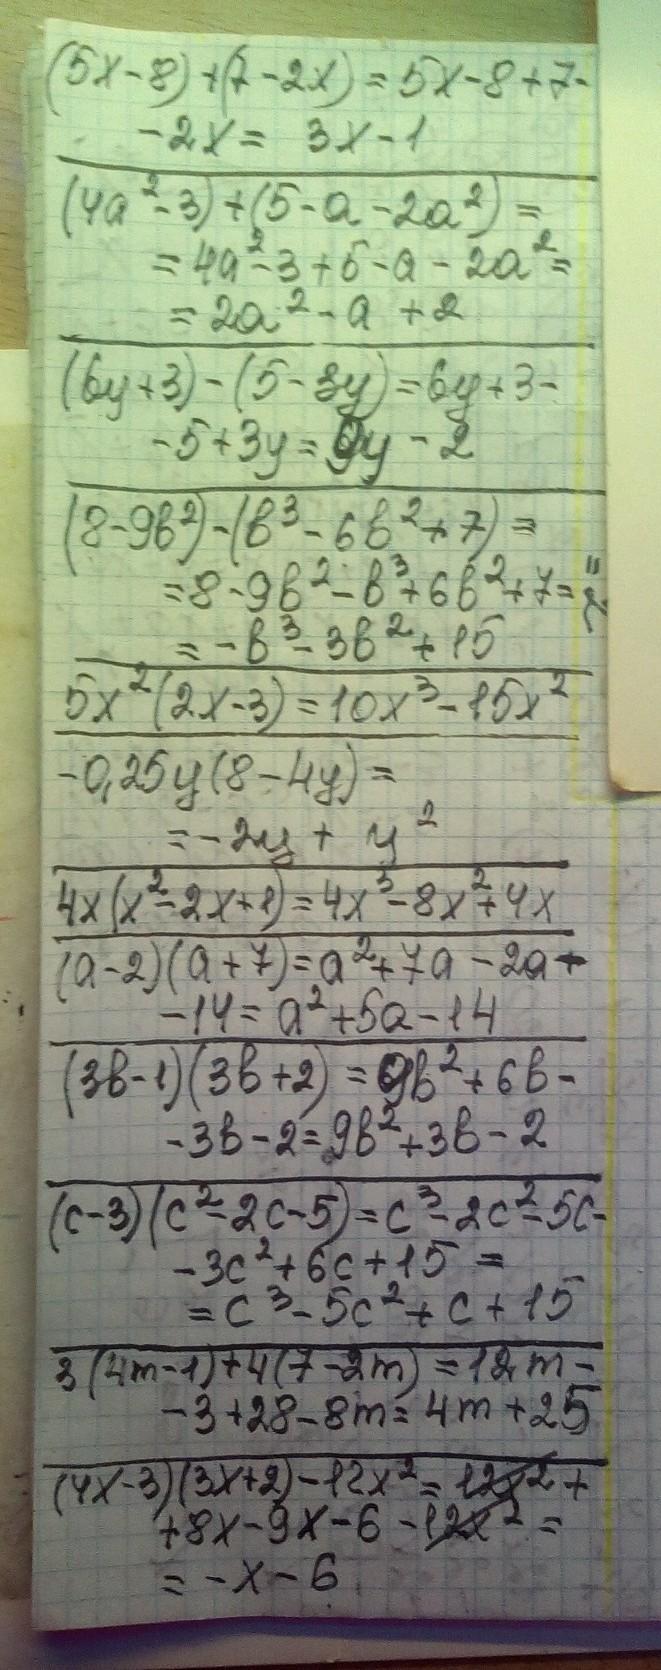 (5x-8)+(7-2x)=5x-8+7-
-2x= 3x-1
(4a²-3)+(5-a-2a²)=
=4a²-3+5-a-2a²=
=2a²-a+2
(6y+3)-(5-3y)=6y+3-
-5+3y=9y-2
(8-9b²)-(b³-6b²+7)=
=8-9b²-b³+6b²+7=
=-b³-3b²+15
5x²(2x-3)=10x³-15x²
-0,25y(8-4y)=
=-2y+y²
4x(x²-2x+1)=4x³-8x²+4x
(a-2)(a+7)=a²+7a-2a-
-14=a²+5a-14
(3b-1)(3b+2)=9b²+6b-
-3b-2=9b²+3b-2
(c-3)(c²-2c-5)=c³-2c²-5c-
-3c²+6c+15=
=c³-5c²+c+15
3(4m-1)+4(7-2m)=12m-
-3+28-8m=4m+25
(4x-3)(3x+2)-12x²=12x²+
+8x-9x-6-12x²=
=-x-6